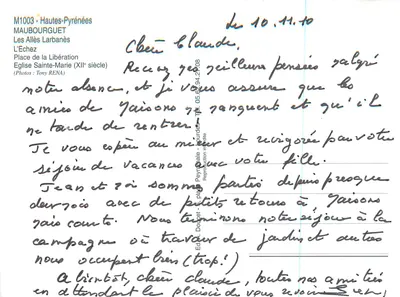 M1003 - Hautes-Pyrénées
MAUBOURGUET
Les Allés Larbanès
L'Echez
Place de la Libération
Eglise Sainte-Marie (XIIe siècle)
(Photos : Tony RENA)
Le 10.11.10
Chère Claude,
Recevez nos meilleures pensées malgré
notre absence, et je vous assure que les
amies de Maisons me manquent et qu'il
me tarde de rentrer!
Je vous espère au mieux et revigorée par votre
séjour de vacances avec votre fille.
Jean et moi sommes partis depuis presque
deux mois avec de petits retours à Maisons
mais courts. Nous terminons notre séjour à la
campagne où travaux de jardin et autres
nous occupent bien (trop!)
A bientôt, chère Claude, toutes nos amitiés
en attendant le plaisir de vous revoir